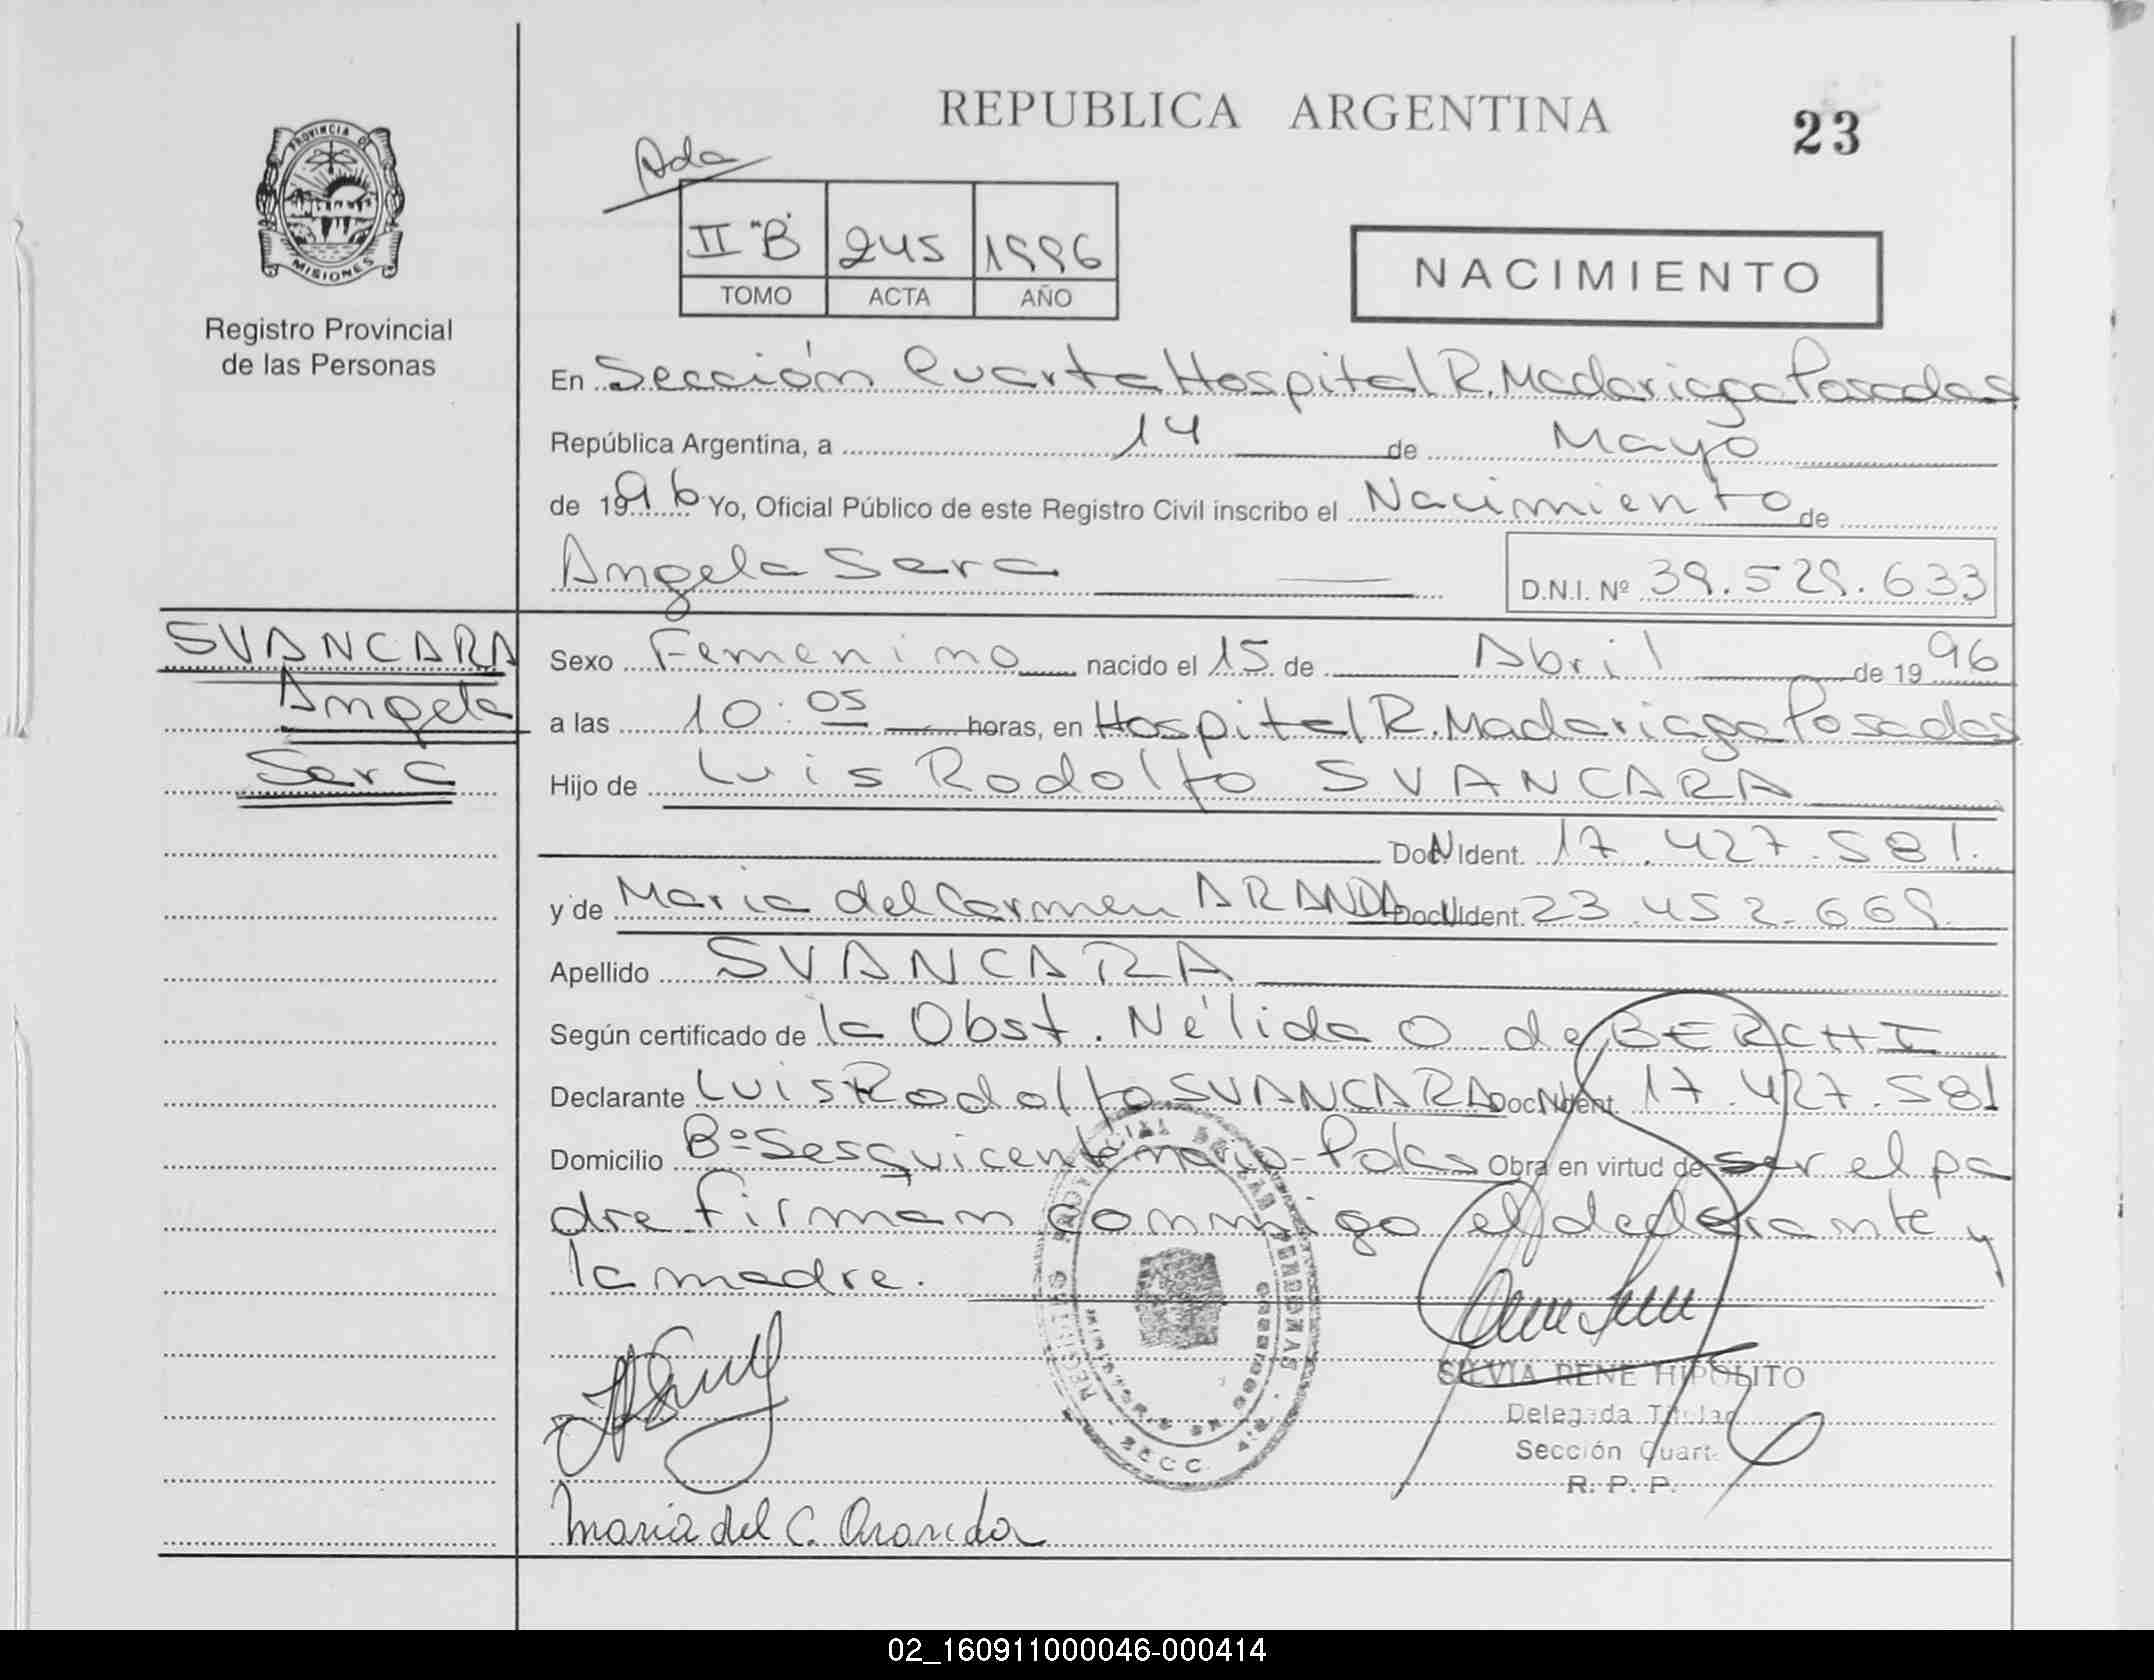 REPUBLICA ARGENTINA
23
Ada
PROVINCIA DE
MISIONES
Registro Provincial
de las Personas
II "B" 245 1996
TOMO ACTA AÑO
NACIMIENTO
En Sección Cuarta Hospital R. Madariaga Posadas
República Argentina, a 14 de Mayo
de 1996 Yo, Oficial Público de este Registro Civil inscribo el Nacimiento de
Angela Sara
D.N.I. Nº 39.529.633
SVANCARA
Angela
Sara
Sexo Femenino nacido el 15 de Abril de 1996
a las 10:05 horas, en Hospital R. Madariaga Posadas
Hijo de Luis Rodolfo SVANCARA
Doc. N Ident. 17.427.581.
y de Maria del Carmen ARANDA Doc. N Ident. 23.452.669.
Apellido SVANCARA
Según certificado de la Obst. Nélida O de BERCHI
Declarante Luis Rodolfo SVANCARA Doc. N Ident. 17.427.581
Domicilio Bº Sesquicentenario-Pdas Obra en virtud de ser el pa
dre firman conmigo el declarante y
la madre.
SILVIA RENE HIPOLITO
Delegada Titular
Sección Cuart
R. P. P.
Maria del C. Aranda
02_160911000046-000414